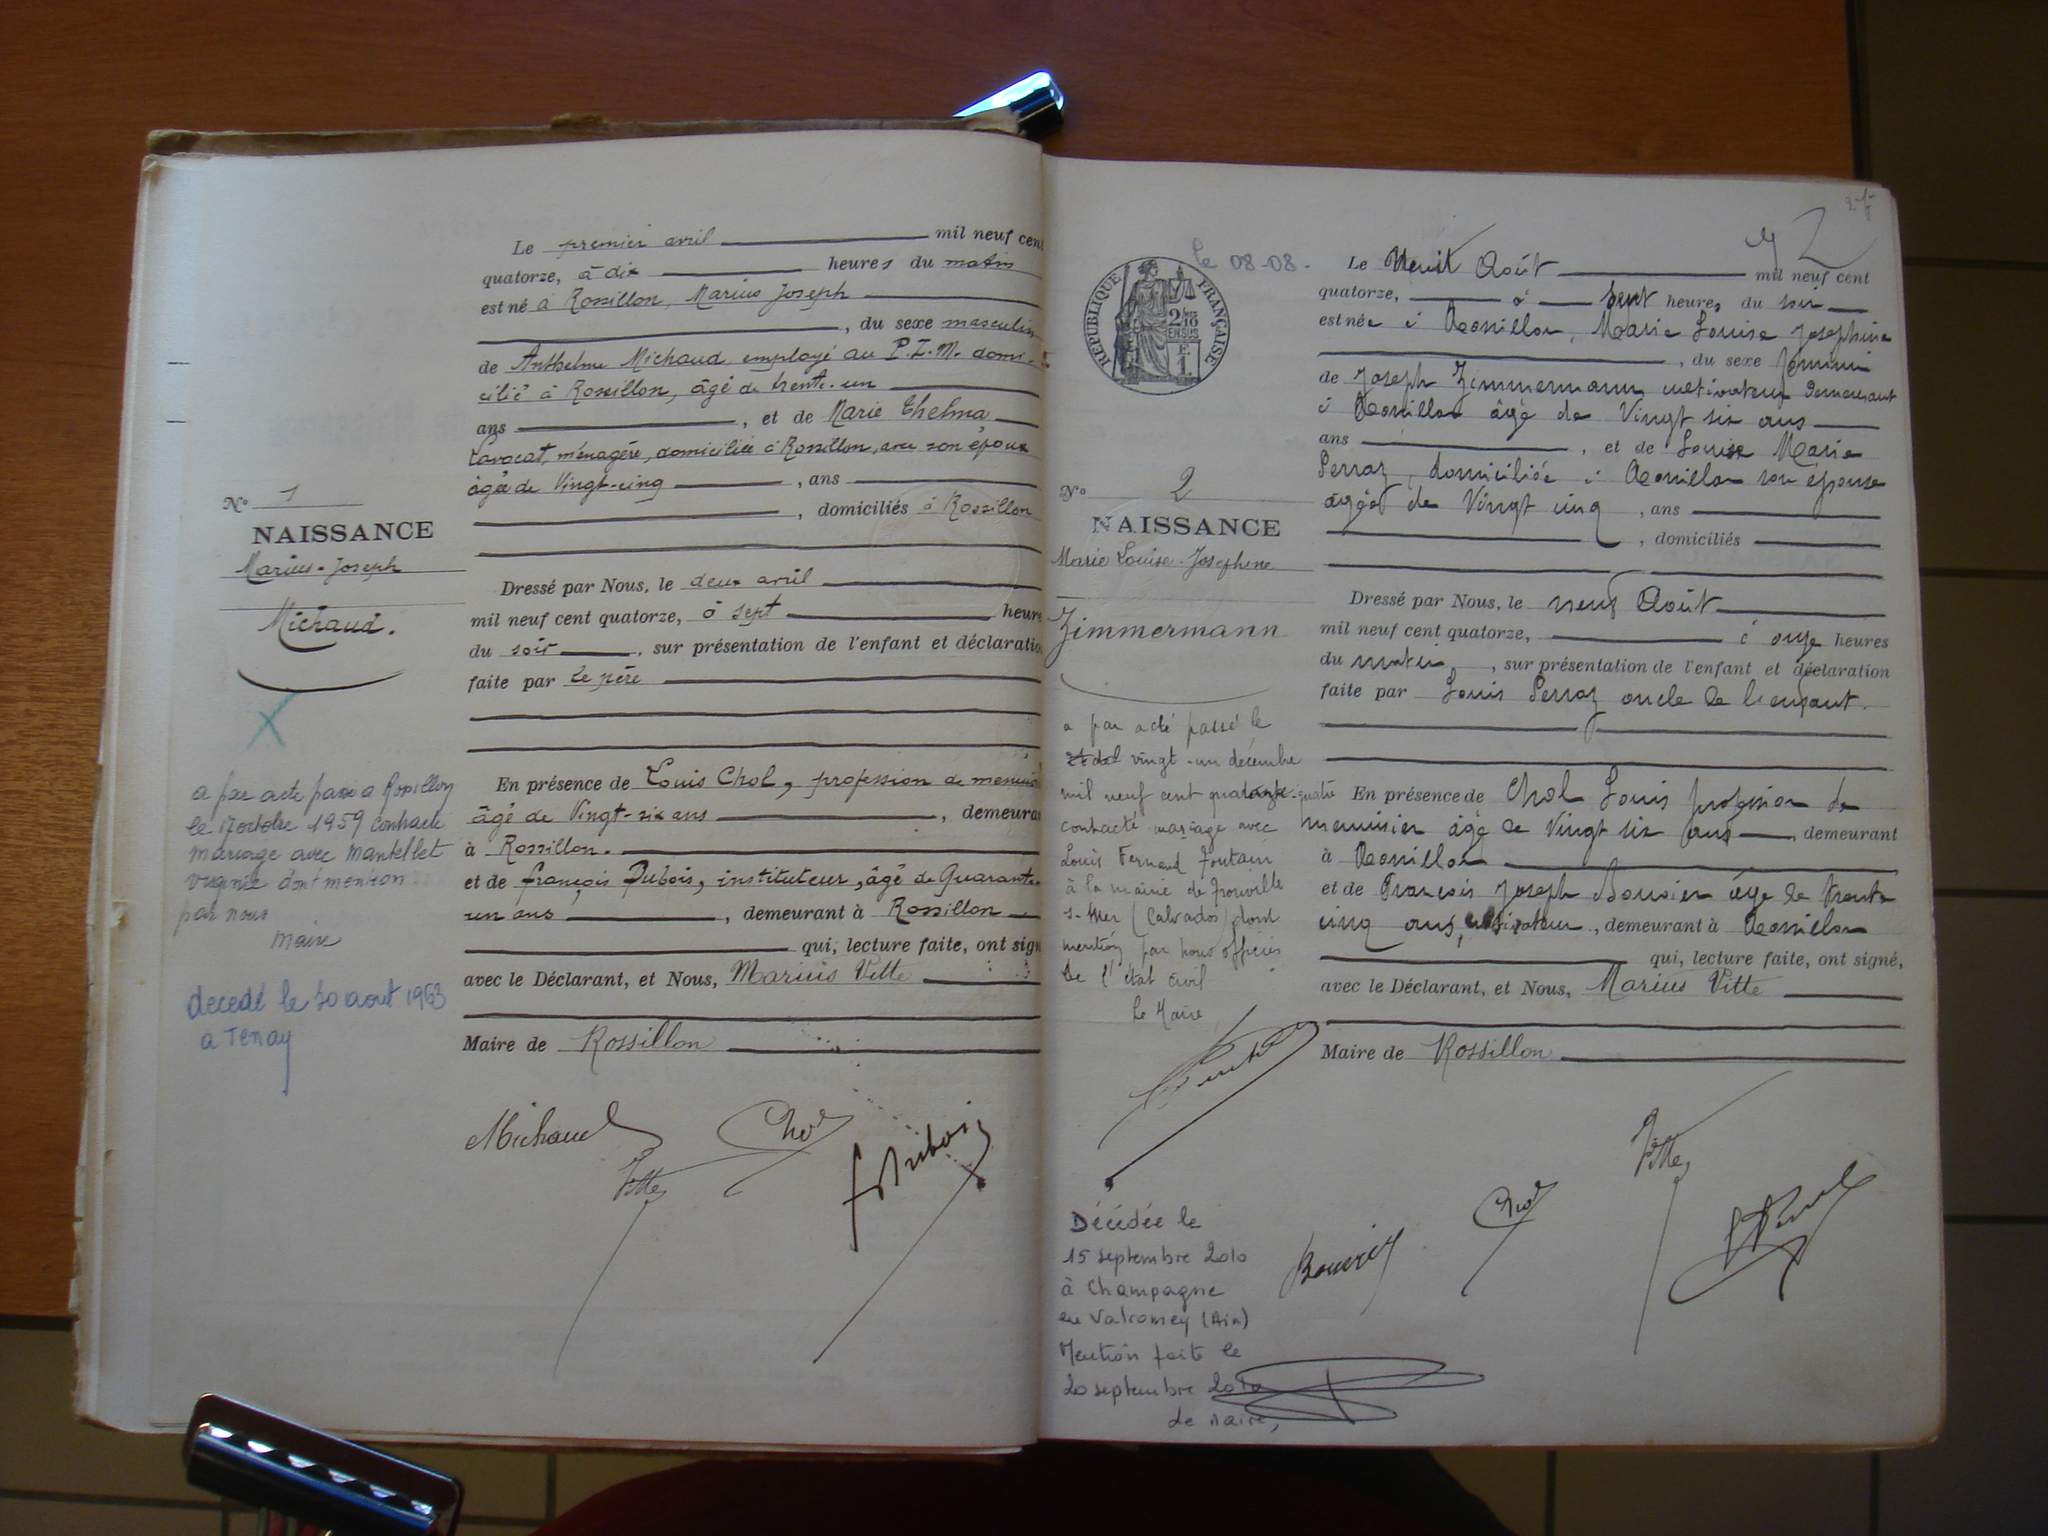 Le premier avril mil neuf cent
quatorze, à dix heures du matin
est né à Rossillon, Marius Joseph
, du sexe masculin
de Anthelme Michaud employé au P.L.M. domi-
cilié à Rossillon, âgé de trente-un
ans , et de Marie Thelma
Lavocat, ménagère, domiciliée à Rossillon, avec son époux
âgée de Vingt-cinq , ans
, domiciliés à Rossillon
No 1
NAISSANCE
Marius-Joseph
Michaud.
Dressé par Nous, le deux avril
mil neuf cent quatorze, à sept heures
du soir , sur présentation de l'enfant et déclaration
faite par Le père
En présence de Louis Chol, profession de menuisier
âgé de Vingt-six ans , demeurant
à Rossillon.
et de françois Dubois, instituteur, âgé de Quarante
un ans , demeurant à Rossillon
qui, lecture faite, ont signé
avec le Déclarant, et Nous, Marius Vitte
Maire de Rossillon
X
a par acte passé a Rossillon
le 17 octobre 1959 contracté
mariage avec Mantellet
virginie dont mention
par nous
Maire
décédé le 30 aout 1963
a Tenay
Michaud
Vitte
Chol
f Dubois
2
le 08-08-
RÉPUBLIQUE FRANÇAISE
Le Huit Août mil neuf cent
quatorze, à Sept heures du soir
est née à Rossillon, Marie Louise Josephine
, du sexe féminin
de Joseph Zimmermann, cultivateur demeurant
à Rossillon âgé de Vingt six ans
ans , et de Louise Marie
Perraz, domiciliée à Rossillon son épouse
âgée de Vingt cinq , ans
, domiciliés
No 2
NAISSANCE
Marie Louise-Josephine
Zimmermann
Dressé par Nous, le neuf Août
mil neuf cent quatorze, à onze heures
du matin, , sur présentation de l'enfant et déclaration
faite par Louis Perraz oncle de l'enfant.
En présence de Chol Louis profession de
menuisier âgé de Vingt six ans , demeurant
à Rossillon
et de François Joseph Bouvier âgé de trente
cinq ans, cultivateur , demeurant à Rossillon
qui, lecture faite, ont signé,
avec le Déclarant, et Nous, Marius Vitte
Maire de Rossillon
a par acte passé le
vingt-un décembre
mil neuf cent quarante-quatre
contracté mariage avec
Louis Fernand Foutain
à la mairie de Trouville
s-Mer (Calvados) dont
mention par nous officier
de l'état civil
Le Maire
Décédée le
15 septembre 2010
à Champagne
en Valromey (Ain)
Mention faite le
20 septembre 2010
Le Maire,
Bouvier
Chol
Vitte